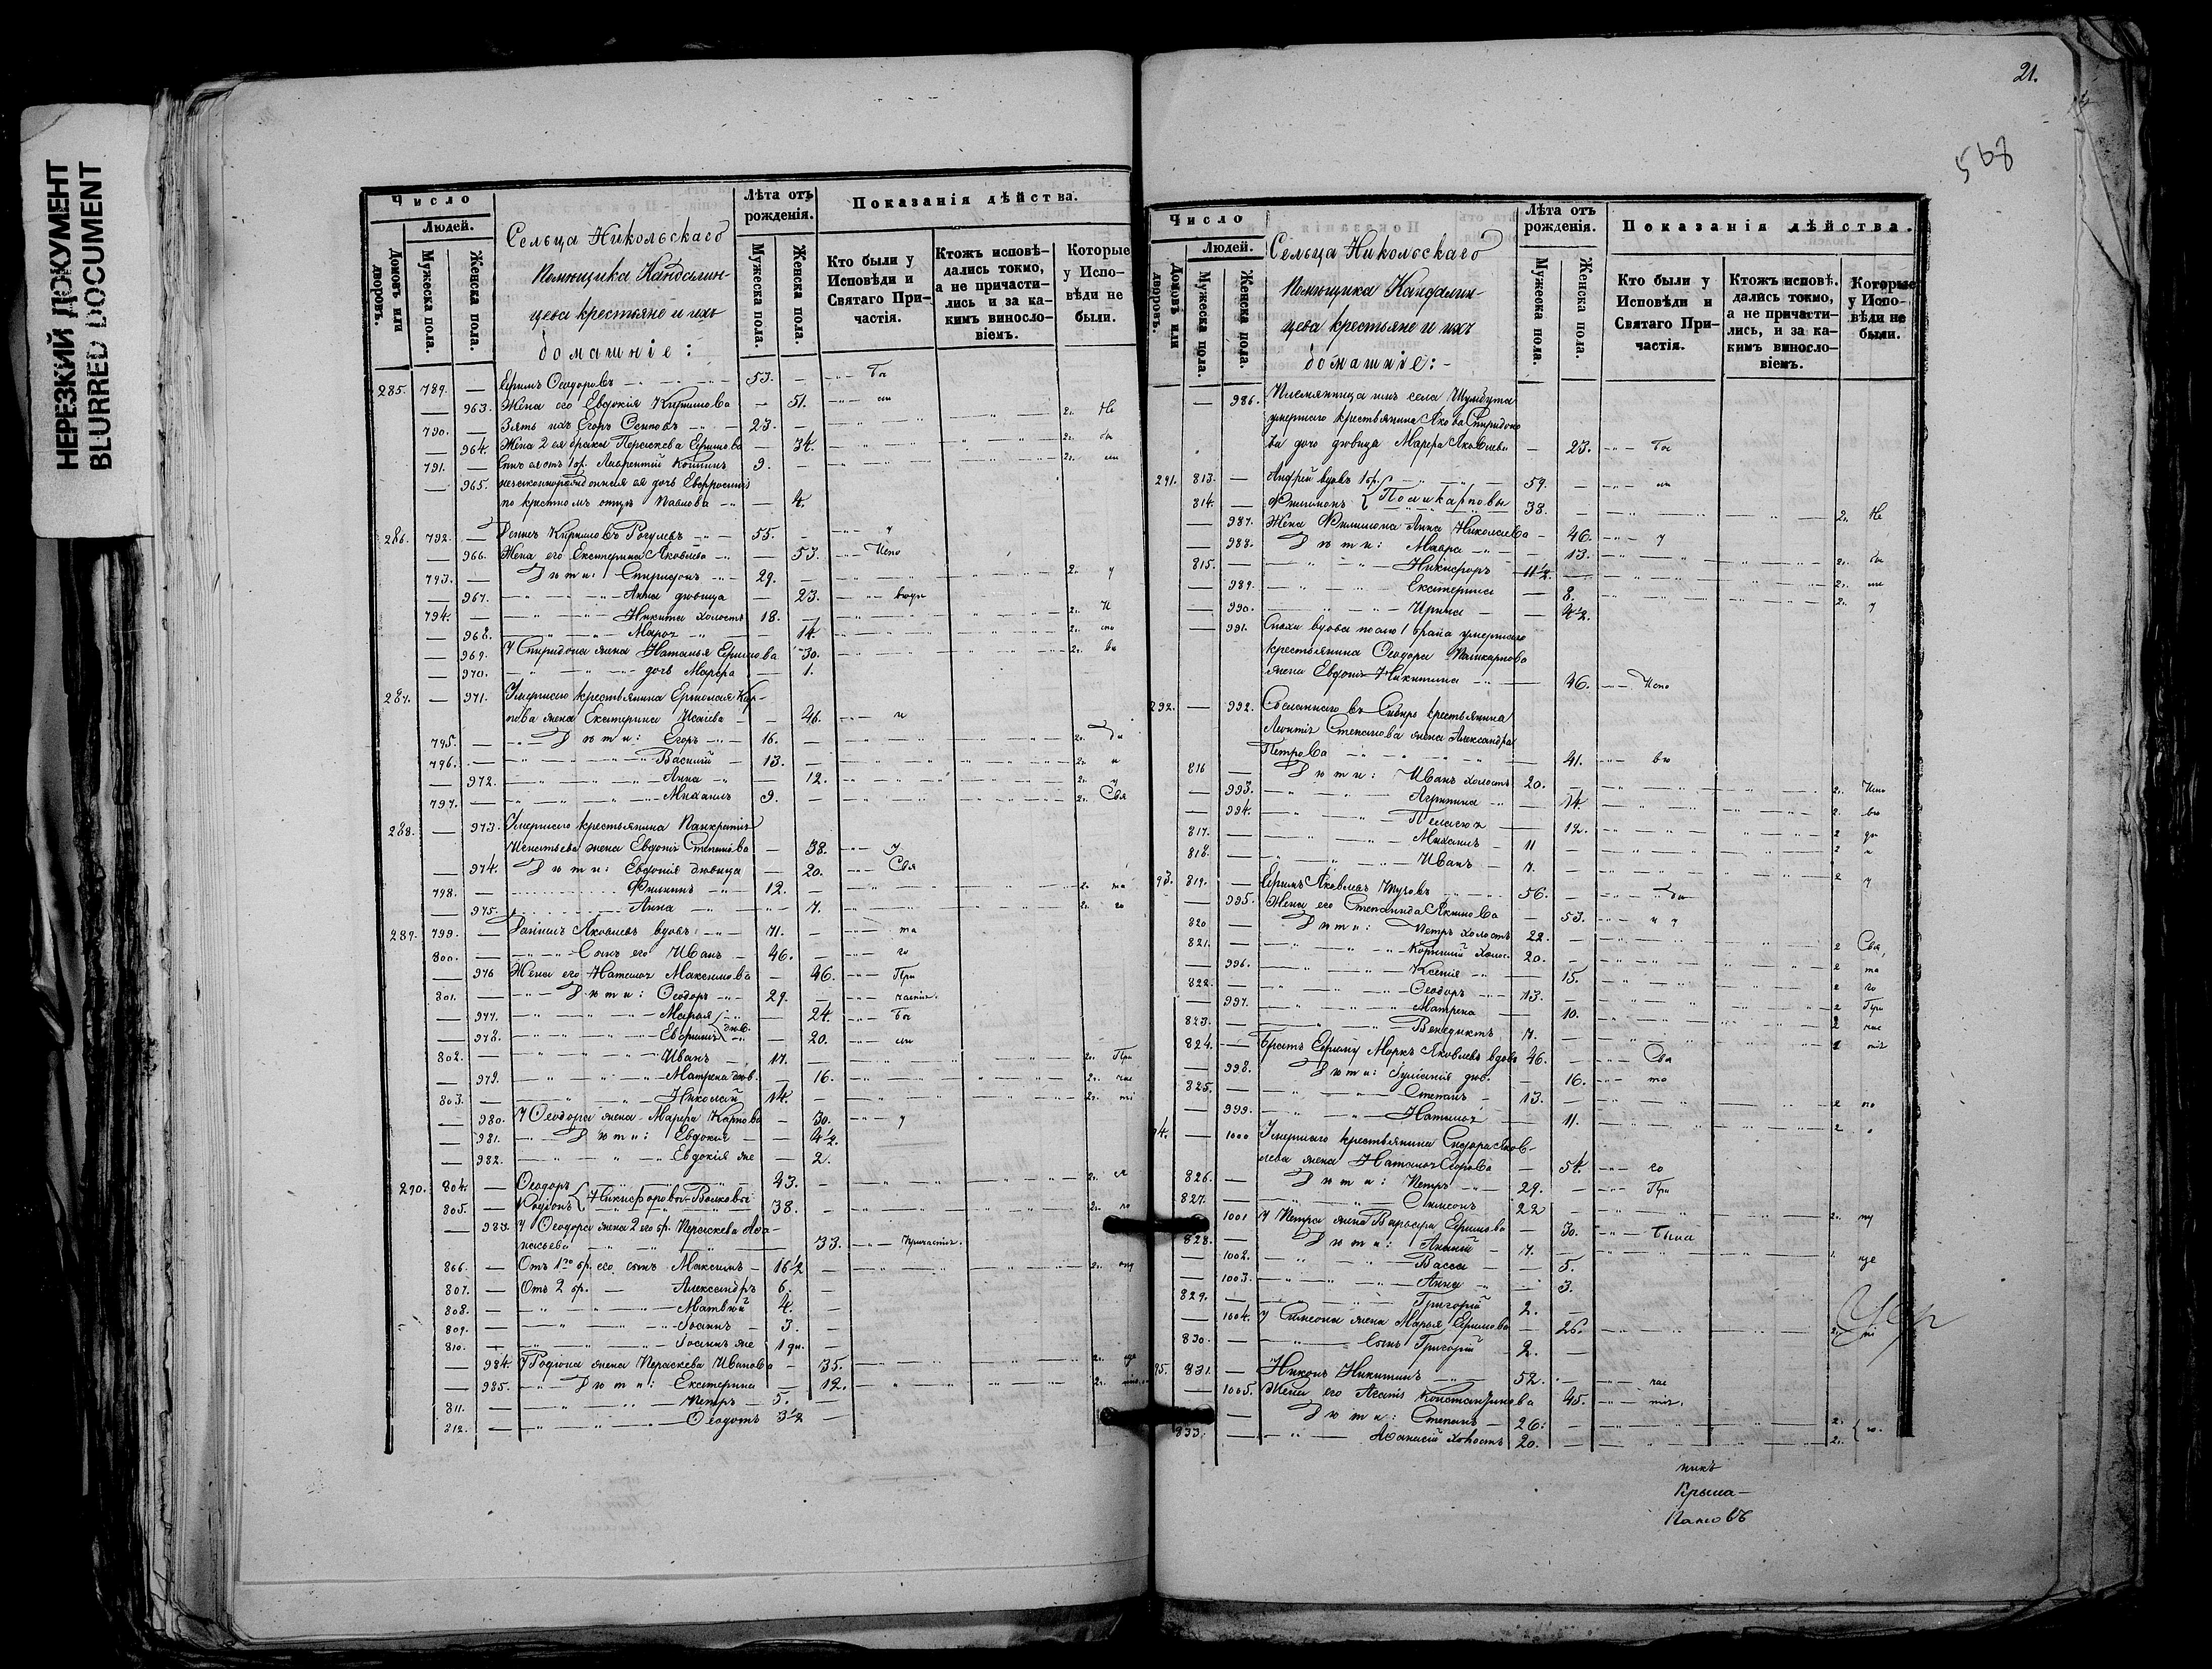 НЕРЕЗКИЙ ДОКУМЕНТ
BLURRED DOCUMENT
Число
Людей.
Домовъ или дворовъ.
Мужеска пола.
Женска пола.
Сельца Никольскаго
Помѣщика
цева крестьяне и ихъ
домашніе:
Лѣта отъ рожденія.
Мужеска пола.
Женска пола.
Показанія дѣйства.
Кто были у Исповѣди и Святаго Причастія.
Ктожъ исповѣдались токмо, а не причастились и за какимъ винословіемъ.
Которые у Исповѣди не были.
285. 789. — Ефимъ Ѳеодоровъ 53. —
— 963. Жена его Евдокія — 51.
790. — Зять ихъ Егоръ Осиповъ 23. — 2.
— 964. Жена 2 ея брака Параскева Ефимова — 34. 2.
791. — Сынъ ея отъ 1 бр. Лаврентій 9. — 2.
— 965. незаконнорожденная ея дочь Евфросинія
по крестномъ отцѣ Павлова — 4.
286. 792. — 55. —
— 966. Жена его Екатерина Яковлева — 53. Испо
793. — Дѣти: Спиридонъ 29. — 2. у
— 967. Анна дѣвица — 23.
794. — Никита холостъ 18. — 2. И
— 968. — 14. 2. спо
— 969. У Спиридона жена Наталья Ефимова 30. 2. вѣ
— 970. дочь Марѳа — 1.
287. — 971. Умершаго крестьянина Ермолая Кар-
пова жена Екатерина Исаева — 46. и
795. — Дѣти: Егоръ 16. — 2. ди
796. — Василій 13. — 2. и
— 972. Анна — 12. 2. у
797. — Михаилъ 9. — 2. Свя
288. — 973. Умершаго крестьянина Панкратія
Игнатьева жена Евдокія Степанова — 38. у
— 974. Дѣти: Евдокія дѣвица — 20. Свя
798. — Филиппъ 12. — 2. та
— 975. Анна — 7. 2. го
289. 799. — Даніилъ Яковлевъ вдовъ 71. — та
800. — Сынъ его Иванъ 46. — го
— 976 Жена его Наталья Максимова — 46. При
801. — Дѣти: Ѳеодоръ 29. — частія.
— 977. Марья — 24. Бы
— 978. — 20. ли
802. — Иванъ 17. — 2. При
— 979. Матрена дѣв. — 16. 2. час
803. — Николай 14. — 2. ті
— 980. У Ѳеодора жена Марѳа Карпова — 30. у
— 981. Дѣти: Евдокія — 4½.
— 982. Евдокія же — 2.
290. 804. — Ѳеодоръ 43. — 2.
805. — Родіонъ { Никифоровы Волковы 38. — 2. по
— 983. У Ѳеодора жена 2 его бр. Параскева Аѳа-
насьева — 33. Причастія.
806. — Отъ 1го бр. его сынъ Максимъ 16½ — 2.
807. — Отъ 2 бр. — Александръ 6. —
808. — Матвѣй 4. —
809. — Іоаннъ 3. —
810. — Іоаннъ же 1 дн. —
— 984. У Родіона жена Параскева Иванова — 35. 2.
— 985. Дѣти: Екатерина — 12. 2.
811. — Петръ 5. —
812. — Ѳеодотъ 3½ —
21.
568
Число
Людей.
Домовъ или дворовъ.
Мужеска пола.
Женска пола.
Сельца Никольскаго
Помѣщика
цева крестьяне и ихъ
домашніе:
Лѣта отъ рожденія.
Мужеска пола.
Женска пола.
Показанія дѣйства.
Кто были у Исповѣди и Святаго Причастія.
Ктожъ исповѣдались токмо, а не причастились, и за какимъ винословіемъ.
Которые у Исповѣди не были.
— 986. Племянница ихъ села
умершаго крестьянина Якова Спиридоно
ва дочь дѣвица Марѳа Яковлева — 23. Бы
291. 813. — вдовъ 1 бр. 59. — ли
814. — Филимонъ { Поликарповы 38. — 2. Не
— 987. Жена Филимона Анна Николаева — 46. у
— 988. Дѣти: Мавра — 13. 2. бы
815. — Никифоръ 11½. — 2. ли
— 989. Екатерина — 8. 2. у
— 990. Ирина — 4½.
— 991. Сноха вдова 1 брака умершаго
крестьянина Ѳеодора Поликарпова
жена Евдокія Никитина — 46. Испо
292. — 992. Сосланнаго въ Сибирь крестьянина
Леонтія Степанова жена Александра
Петрова — 41. вѣ
816 — Дѣти: Иванъ холостъ 20. — 2. Испо
— 993. Агрипина — 14. 2. вѣ
— 994. Пелагея — 12. 2 ди
817. — Михаилъ 11 — 2 и
818. — Иванъ 7. — 2 у
93. 819. — Ефимъ Яковлевъ 56. — ди
— 995. Жена его Степанида Якимова — 53. и у
820 — Дѣти: Петръ холостъ 22. — 2 Свя
821. — Корнилій холос. 20. — 2 та
— 996. Ксенія — 15. 2 го
822. — Ѳеодоръ 13. — 2 При
— 997. Матрена — 10. 2 час
823. — Венедиктъ 7. — 2 тія
824. — Братъ Ефиму Маркъ Яковлевъ вдовъ 46. — Свя
— 998. Дѣти: Іуліанія дѣв. — 16. та
825. — Степанъ 13. — 2 го
— 999. Наталья — 11. 2
94. — 1000 Умершаго крестьянина Сидора Яков-
лева жена Наталья — 54. го
826. — Дѣти: Петръ 29. — При
827. — Симеонъ 22 — 2.
— 1001 У Петра жена Варвара Ефимова — 30.
828. — Дѣти: Ананій 7. —
— 1002. Васса — 5.
— 1003. Анна — 3.
829. — Григорій 2. —
— 1004. У Симеона жена Марья Ефимова — 26. 2.
830. — Сынъ Григорій 2. —
95. 831. — Никонъ Никитинъ 52. — час
— 1005. Жена его Агаѳія Константинова 45. тія.
— Дѣти: Степанъ 26. — 2.
833. — Аѳанасій холостъ 20. — 2.
никъ